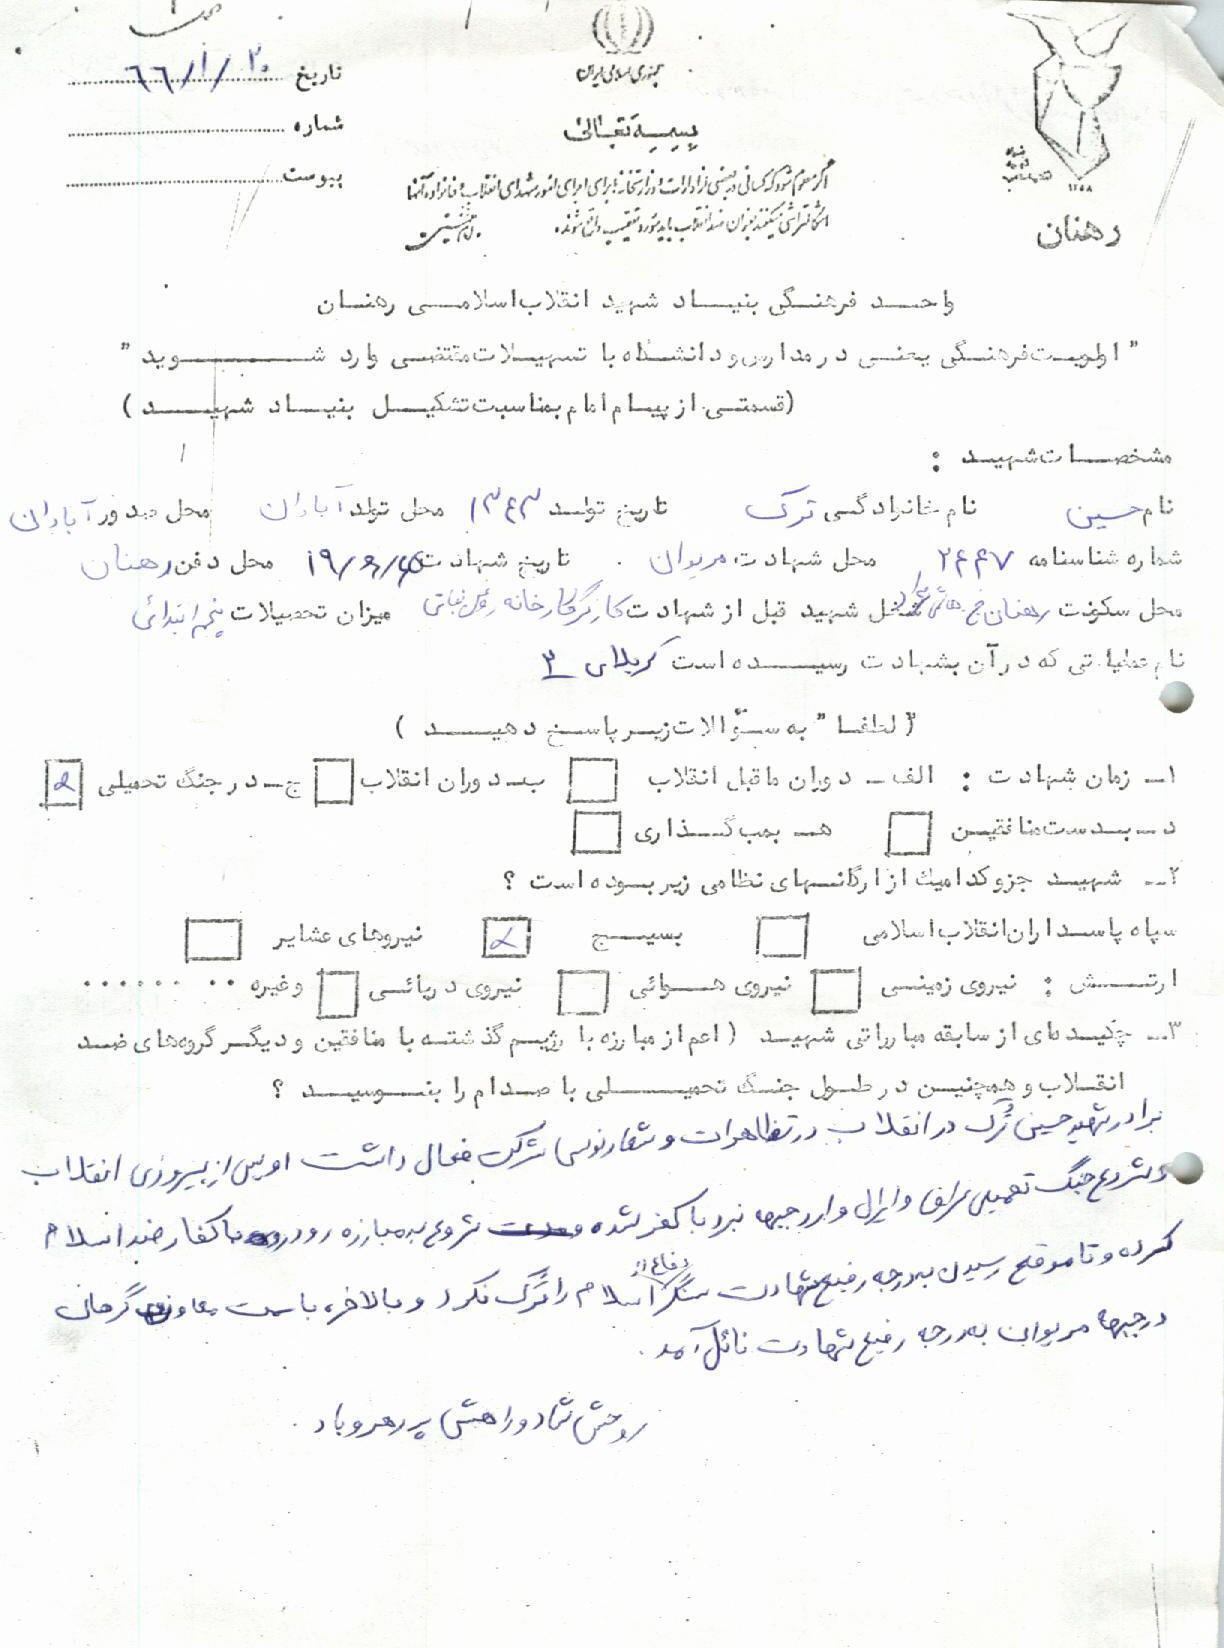 جمهوری اسلامی ایران
تاریخ ۶۶/۱/۲۰
بسمه تعالی
شماره
پیوست
اگر معلوم شود که کسانی در بعضی از ادارات و وزارتخانه‌ها برای اجرای امور شهدای انقلاب و خانواده آنها
اشکالتراشی میکنند بعنوان ضد انقلاب باید مورد تعقیب واقع شوند. امام خمینی
بنیاد شهید انقلاب
۱۳۵۸
رهنان
واحد فرهنگی بنیاد شهید انقلاب اسلامی رهنان
" اولویت فرهنگی یعنی در مدارس و دانشگاه با تسهیلات مقتضی وارد شوید "
(قسمتی از پیام امام بمناسبت تشکیل بنیاد شهید)
مشخصات شهید :
نام حسین نام خانوادگی ترک تاریخ تولد ۱۳۴۳ محل تولد آبادان محل صدور آبادان
شماره شناسنامه ۲۴۴۷ محل شهادت مریوان تاریخ شهادت محل دفن رهنان
محل سکونت رهنان شغل شهید قبل از شهادت کارگر کارخانه روغن نباتی میزان تحصیلات پنجم ابتدائی
نام عملیاتی که در آن بشهادت رسیده است کربلای ۳
( لطفا" به سؤالات زیر پاسخ دهید )
۱ـ زمان شهادت : الف ـ دوران ماقبل انقلاب ب ـ دوران انقلاب ج ـ در جنگ تحمیلی
د ـ بدست منافقین هـ ـ بمب گذاری
۲ـ شهید جزو کدامیک از ارگانهای نظامی زیر بوده است ؟
سپاه پاسداران انقلاب اسلامی بسیج نیروهای عشایر
ارتش : نیروی زمینی نیروی هوائی نیروی دریائی وغیره ........
۳ـ چکیده‌ای از سابقه مبارزاتی شهید ( اعم از مبارزه با رژیم گذشته با منافقین و دیگر گروه‌های ضد
انقلاب و همچنین در طول جنگ تحمیلی با صدام را بنویسید ؟
برادر شهید حسین تُرک در انقلاب در تظاهرات و شعارنویسی شرکت فعال داشت او پس از پیروزی انقلاب
و شروع جنگ تحمیلی عراق و ایران وارد جبهه نبرد با کفر شده شروع به مبارزه رودررو با کفار ضد اسلام
کرده و تا موقع رسیدن به درجه رفیع شهادت سنگر دفاع از اسلام را ترک نکرد و بالاخره با سمت معاون گرهان
در جبهه مریوان به درجه رفیع شهادت نائل آمد.
روحش شاد و راهش پر رهرو باد.